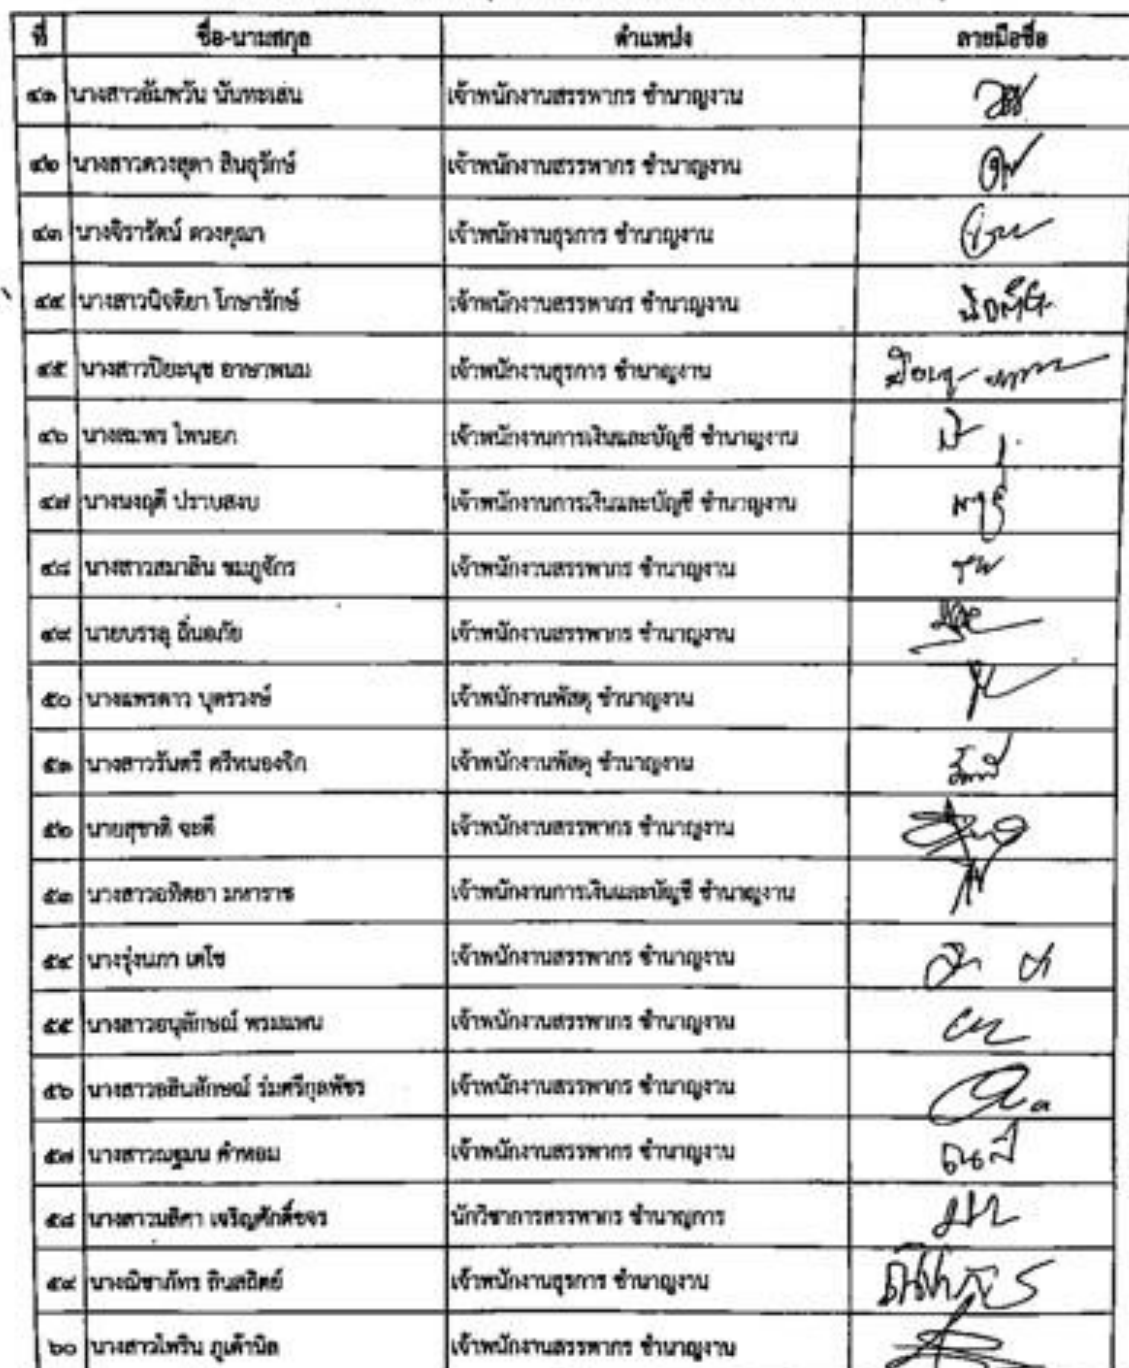 ที่ ชื่อ-นามสกุล ตำแหน่ง ลายมือชื่อ
๔๑ นางสาวอัมพวัน นันทะเสน เจ้าพนักงานสรรพากร ชำนาญงาน
๔๒ นางสาวดวงสุดา สินธุรักษ์ เจ้าพนักงานสรรพากร ชำนาญงาน
๔๓ นางจิรารัตน์ ดวงคุณา เจ้าพนักงานธุรการ ชำนาญงาน
๔๔ นางสาวนิจติยา โกษารักษ์ เจ้าพนักงานสรรพากร ชำนาญงาน
๔๕ นางสาวปิยะนุช อาษาพนม เจ้าพนักงานธุรการ ชำนาญงาน
๔๖ นางสมพร ไพนอก เจ้าพนักงานการเงินและบัญชี ชำนาญงาน
๔๗ นางนงฤดี ปราบสงบ เจ้าพนักงานการเงินและบัญชี ชำนาญงาน
๔๘ นางสาวสมาลิน ชมภูจักร เจ้าพนักงานสรรพากร ชำนาญงาน
๔๙ นายบรรลุ ถิ่นอภัย เจ้าพนักงานสรรพากร ชำนาญงาน
๕๐ นางแพรดาว บุตรวงษ์ เจ้าพนักงานพัสดุ ชำนาญงาน
๕๑ นางสาวรันตรี ศรีหนองจิก เจ้าพนักงานพัสดุ ชำนาญงาน
๕๒ นายสุชาติ จะดี เจ้าพนักงานสรรพากร ชำนาญงาน
๕๓ นางสาวอทิตยา มหาราช เจ้าพนักงานการเงินและบัญชี ชำนาญงาน
๕๔ นางรุ่งนภา เตโช เจ้าพนักงานสรรพากร ชำนาญงาน
๕๕ นางสาวอนุลักษณ์ พรมแพน เจ้าพนักงานสรรพากร ชำนาญงาน
๕๖ นางสาวอลินลักษณ์ ร่มศรีกุลพัชร เจ้าพนักงานสรรพากร ชำนาญงาน
๕๗ นางสาวณฐมน คำหอม เจ้าพนักงานสรรพากร ชำนาญงาน
๕๘ นางสาวนลิศา เจริญศักดิ์ขจร นักวิชาการสรรพากร ชำนาญการ
๕๙ นางณิชาภัทร ถินสถิตย์ เจ้าพนักงานธุรการ ชำนาญงาน
๖๐ นางสาวไพริน ภูเต้านิล เจ้าพนักงานสรรพากร ชำนาญงาน